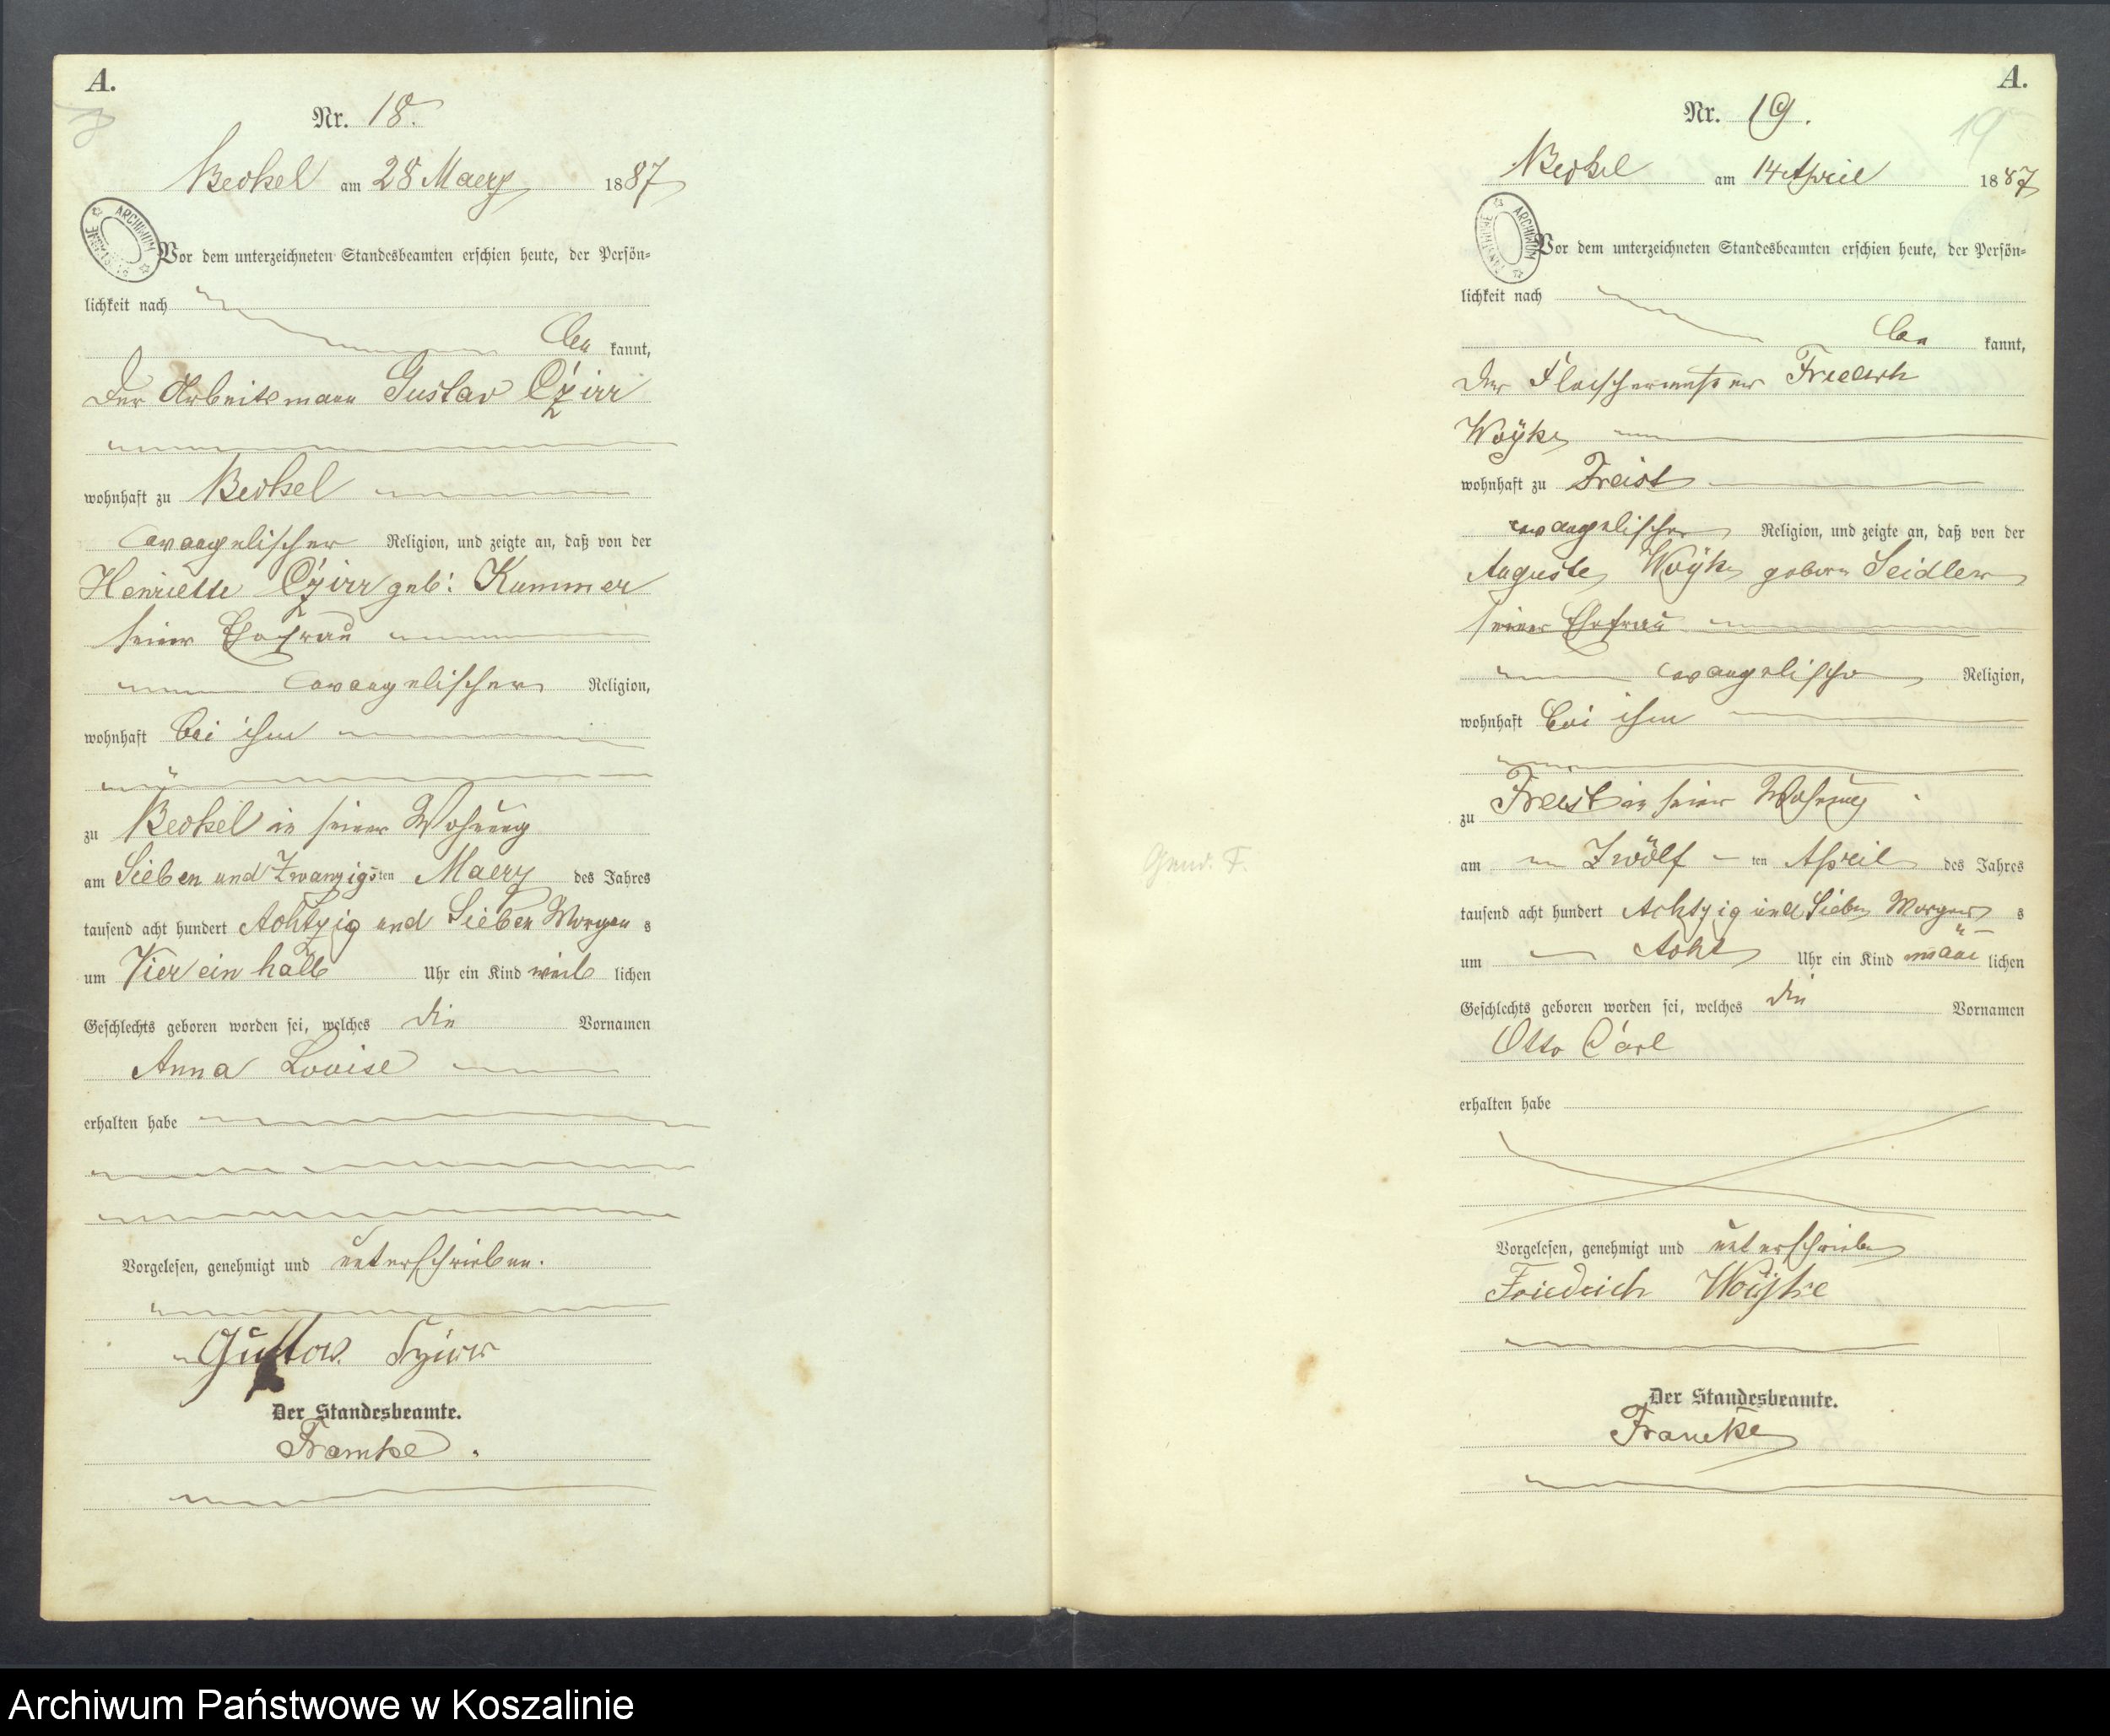 A.
18
Nr. 18.
Beckel am 28 Maerz 1887
ARCHIWUM
Vor dem unterzeichneten Standesbeamten erschien heute, der Persön-
lichkeit nach
be kannt,
der Arbeitsmann Gustav Czirr
wohnhaft zu Beckel
evangelischer Religion, und zeigte an, daß von der
Henriette Czirr geb: Kummer
seiner Ehefrau
evangelischer Religion,
wohnhaft bei ihm
zu Beckel in seiner Wohnung
am Sieben und Zwanzigsten Maerz des Jahres
tausend acht hundert Achtzig und Sieben Morgens
um Vier ein halb Uhr ein Kind weiblichen
Geschlechts geboren worden sei, welches die Vornamen
Anna Louise
erhalten habe
Vorgelesen, genehmigt und unterschrieben.
Gustav Czirr
Der Standesbeamte.
Framke.
A.
19
Nr. 19.
Beckel am 14 April 1887
ARCHIWUM
Vor dem unterzeichneten Standesbeamten erschien heute, der Persön-
lichkeit nach
be kannt,
der Fleischermeister
Woÿke
wohnhaft zu Freist
evangelischer Religion, und zeigte an, daß von der
Auguste Woÿke geborn Seidler
seiner Ehefrau
evangelischer Religion,
wohnhaft bei ihm
zu Freist in seiner Wohnung
am Zwölf ten April des Jahres
tausend acht hundert Achtzig und Sieben Morgens
um Acht Uhr ein Kind männlichen
Geschlechts geboren worden sei, welches die Vornamen
Otto Carl
erhalten habe
Vorgelesen, genehmigt und unterschrieben
Friedrich Woÿke
Der Standesbeamte.
Francke
Archiwum Państwowe w Koszalinie